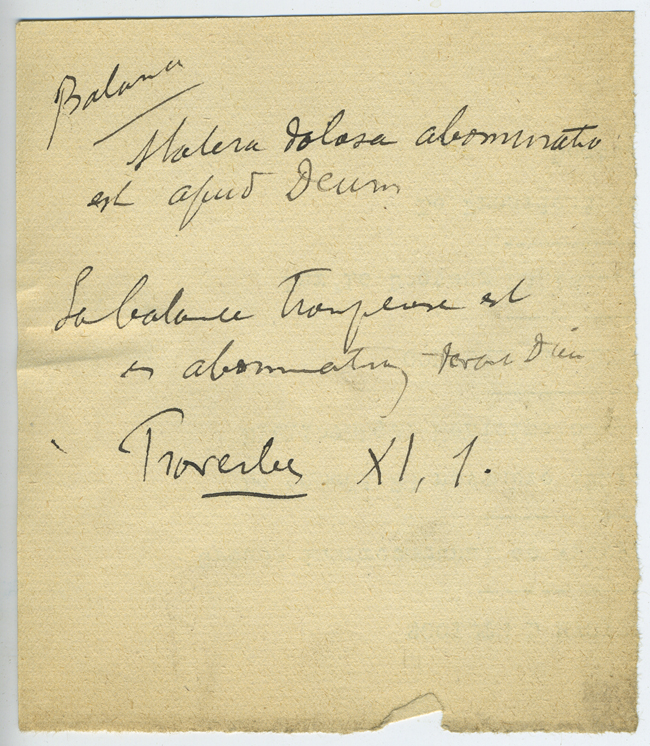 Balance
Statera dolosa abominatio
est apud Deum
La balance trompeuse est
en abomination devant Dieu
Proverbes XI, 1.